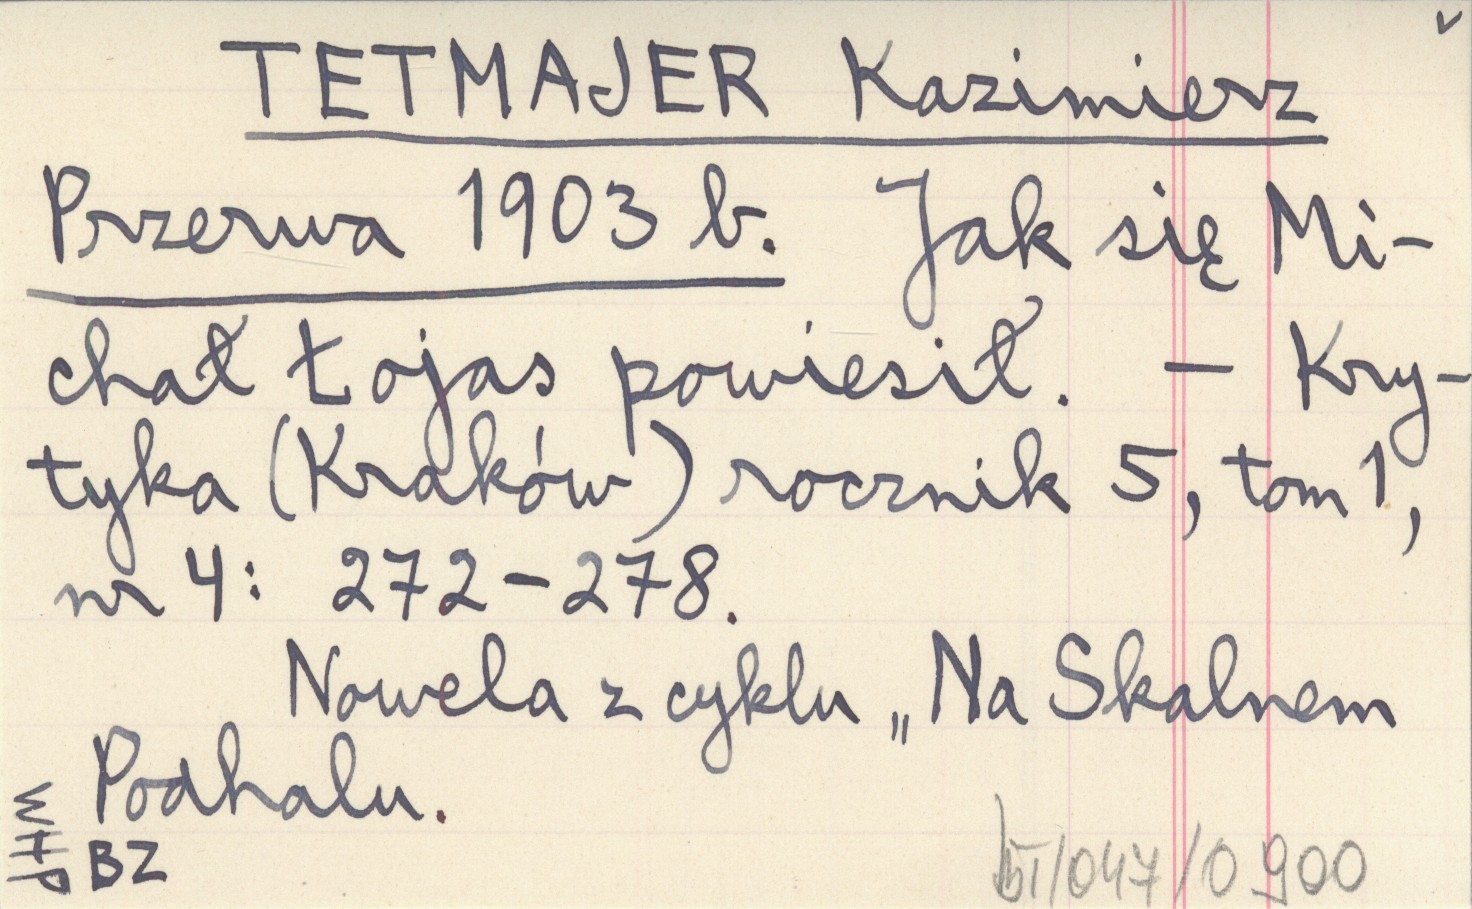 TETMAJER Kazimierz
Przerwa 1903 b. Jak się Mi-
chał Łojas powiesił. – Kry-
tyka (Kraków) rocznik 5, tom 1,
nr 4: 272–278.
Nowela z cyklu „Na Skalnem
Podhalu.
WHP
BZ
/047/0900